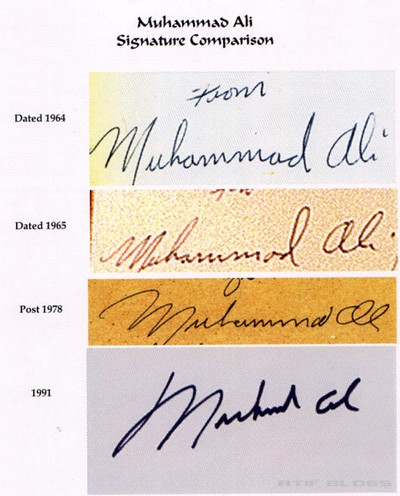 Muhammad Ali
Signature Comparison
Dated 1964
From
Muhammad Ali
Dated 1965
Muhammad Ali
Post 1978
Muhammad Ali
1991
Muhammad Ali
RTIF BLOGS